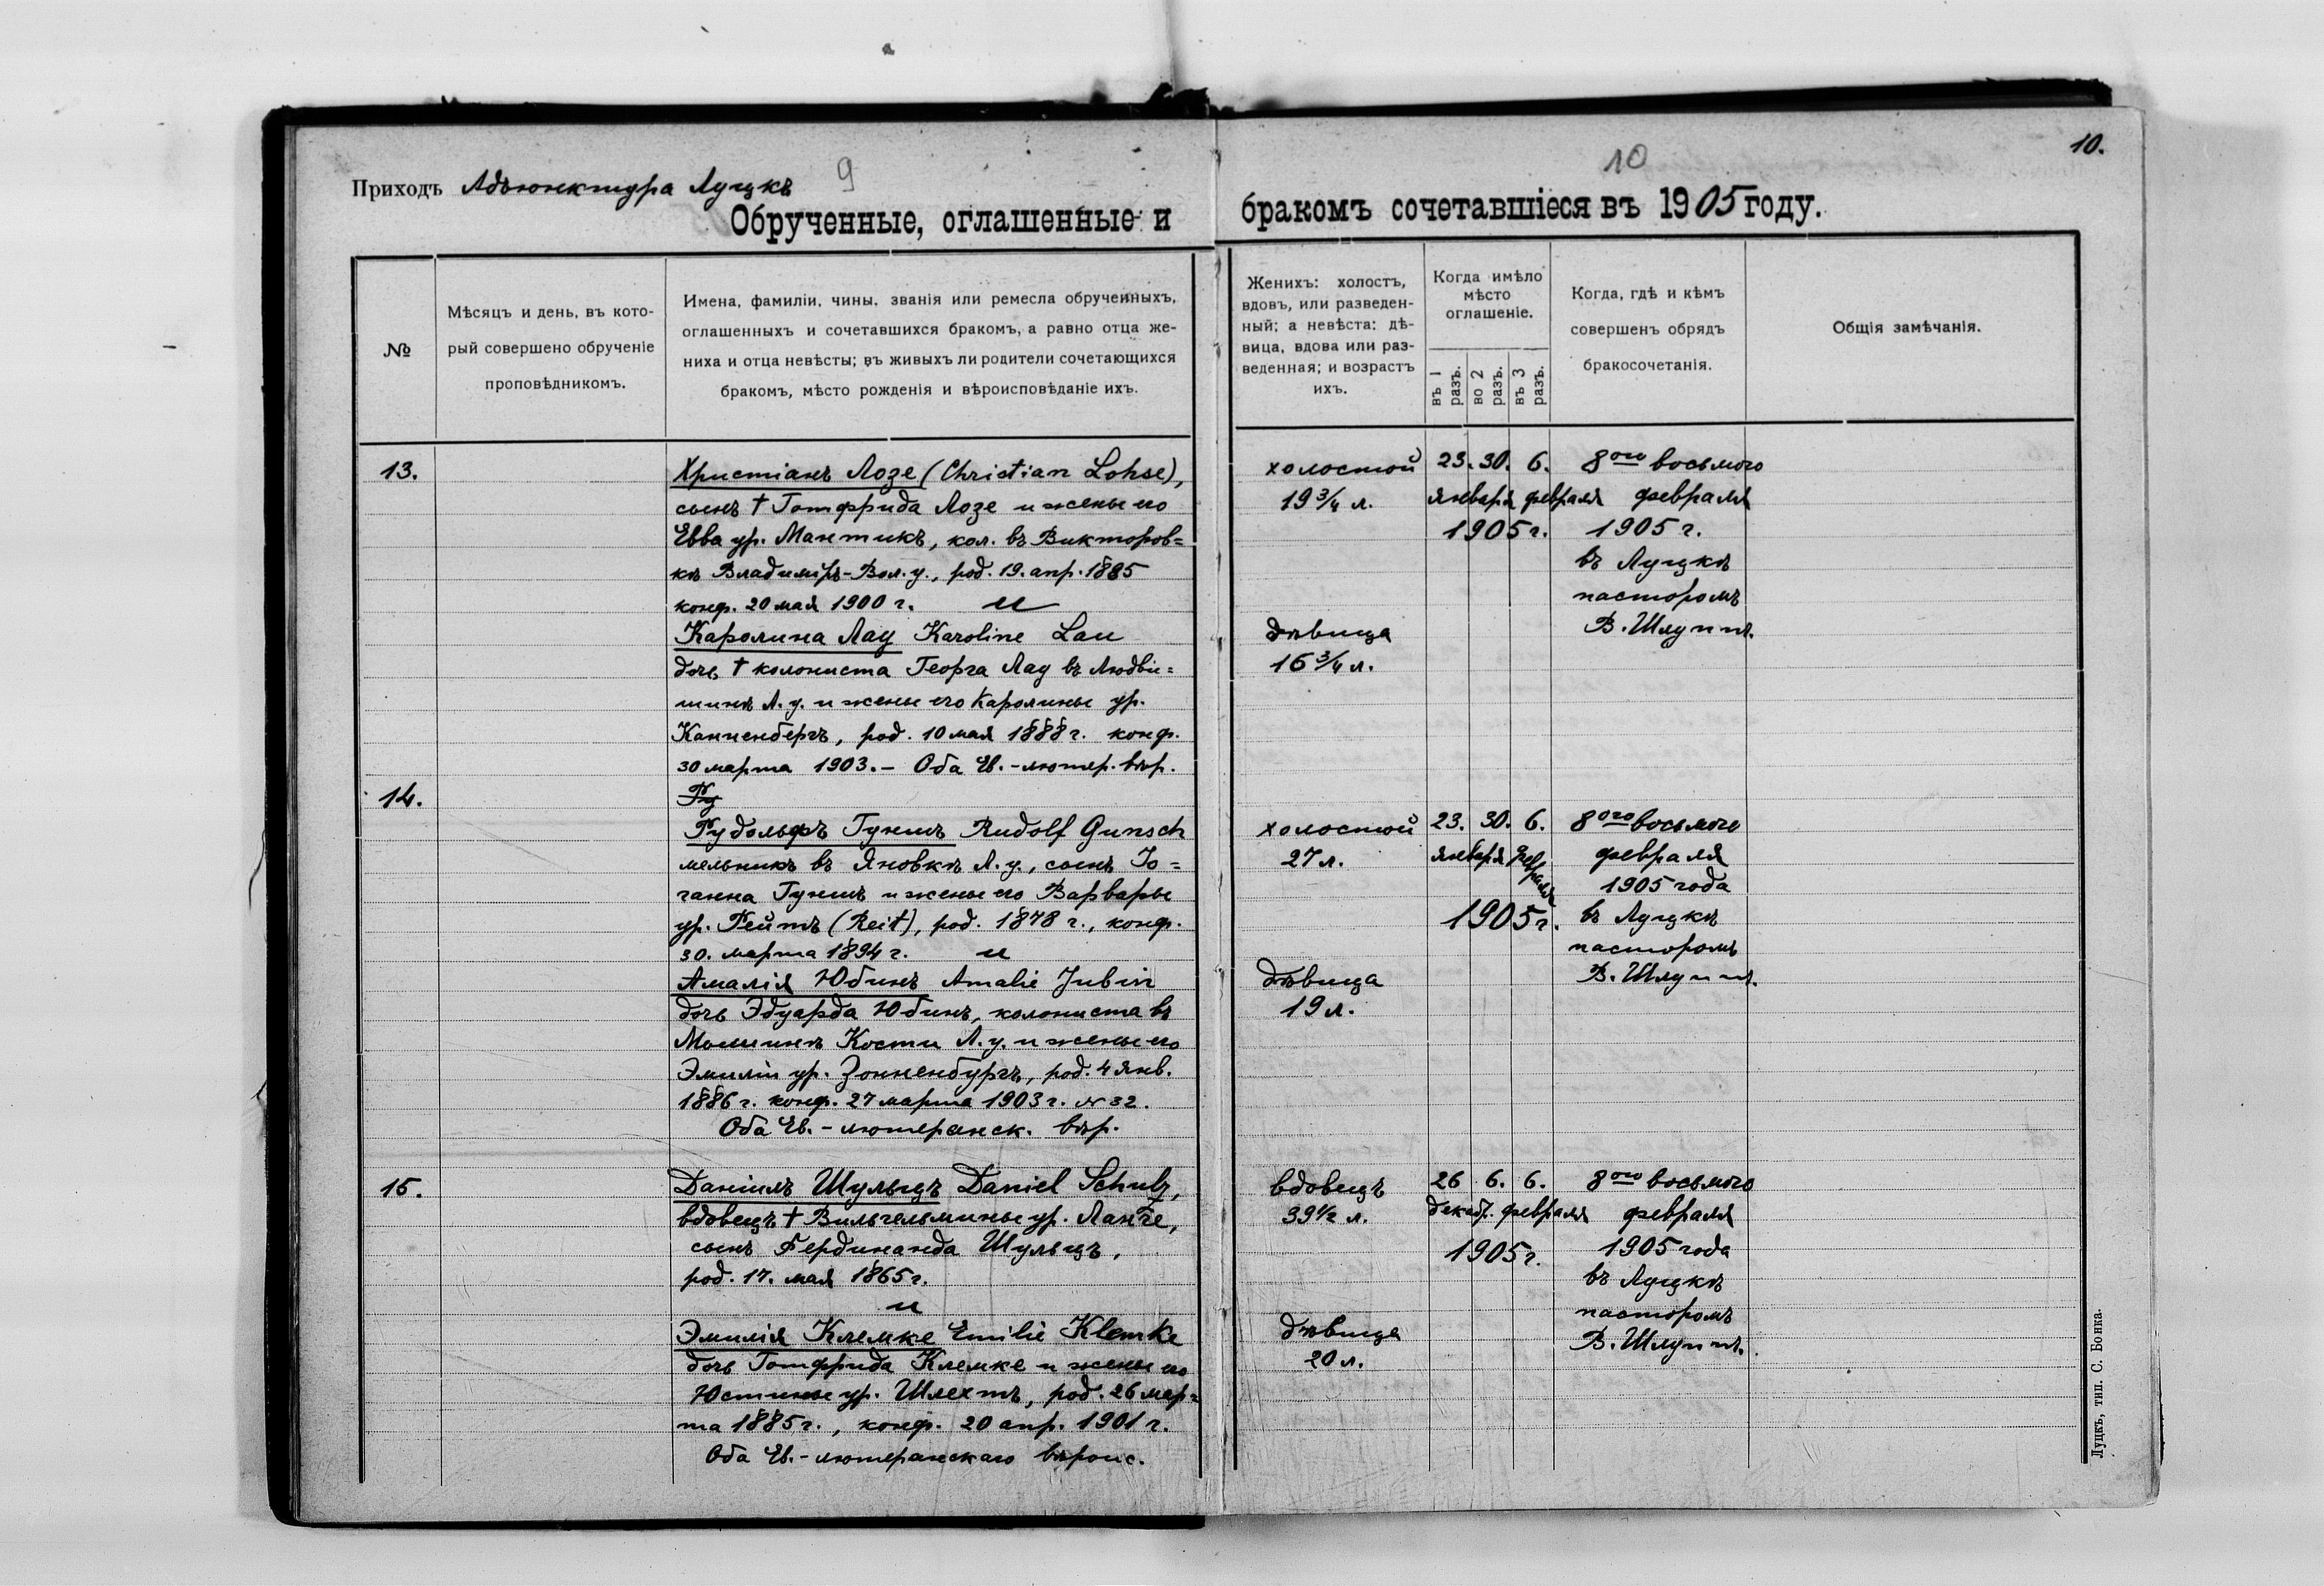 10.
9
10
Приходъ Адъюнктура Луцкъ
Обрученные, оглашенные и
бракомъ сочетавшіеся въ 1905 году.
№
Мѣсяцъ и день, въ кото-
рый совершено обрученіе
проповѣдникомъ.
Имена, фамиліи, чины, званія или ремесла обрученныхъ,
оглашенныхъ и сочетавшихся бракомъ, а равно отца же-
ниха и отца невѣсты; въ живыхъ ли родители сочетающихся
бракомъ, мѣсто рожденія и вѣроисповѣданіе ихъ.
Женихъ: холостъ,
вдовъ, или разведен-
ный; а невѣста: дѣ-
вица, вдова или раз-
веденная; и возрастъ
ихъ.
Когда имѣло
мѣсто
оглашеніе.
въ 1 разъ.
во 2 разъ.
въ 3 разъ.
Когда, гдѣ и кѣмъ
совершенъ обрядъ
бракосочетанія.
Общія замѣчанія.
13.
Христіанъ Лозе (Christian Lohse),
сынъ † Готфрида Лозе и жены его
Евва ур. Мантикъ, кол. въ Викторов=
кѣ Владимiръ-Вол. у., род. 19. апр. 1885
конф. 20 мая 1900 г. и
Каролина Лау Karoline Lau
дочь † колониста Георга Лау въ Людви=
шинѣ Л. у. и жены его Каролины ур.
Канненбергъ, род. 10 мая 1888 г. конф.
30 марта 1903. – Оба Ев.-лютер. вѣр.
холостой
19 3/4 л.
дѣвица
16 3/4 л.
23. 30. 6.
января февраля
1905 г.
8ого восьмого
февраля
1905 г.
въ Луцкѣ
пасторомъ
В. Шлуппъ.
14.
Ру
Рудольфъ Гуншъ Rudolf Gunsch
мельникъ въ Яновкѣ Л. у., сынъ Іо=
ганна Гуншъ и жены его Варвары
ур. Рейтъ (Reit), род. 1878 г., конф.
30. марта 1894 г. и
Амалія Юбинъ Amalie Jubin
дочь Эдуарда Юбинъ, колониста въ
Кости Л. у. и жены его
Эмиліи ур. Зонненбургъ, род. 4 янв.
1886 г. конф. 27 марта 1903 г. № 32.
Оба Ев.-лютеранск. вѣр.
холостой
27 л.
дѣвица
19 л.
23. 30. 6.
января февраля
1905 г.
8ого восьмого
февраля
1905 года
въ Луцкѣ
пасторомъ
В. Шлуппъ.
15.
Даніилъ Шульцъ Daniel Schulz,
вдовецъ † Вильгельмины ур. Ланге,
сынъ Фердинанда Шульцъ,
род. 17. мая 1865 г.
и
Эмилія Клемке Emilie Klemke
дочь Готфрида Клемке и жены его
Юстины ур. Шлехтъ, род. 26 мар=
та 1885 г., конф. 20 апр. 1901 г.
Оба Ев.-лютеранскаго вѣроис.
вдовецъ
39 1/2 л.
дѣвица
20 л.
26 6. 6.
декабр. февраля
1905 г.
8ого восьмого
февраля
1905 года
въ Луцкѣ
пасторомъ
В. Шлуппъ.
Луцкъ, тип. С. Бонка.